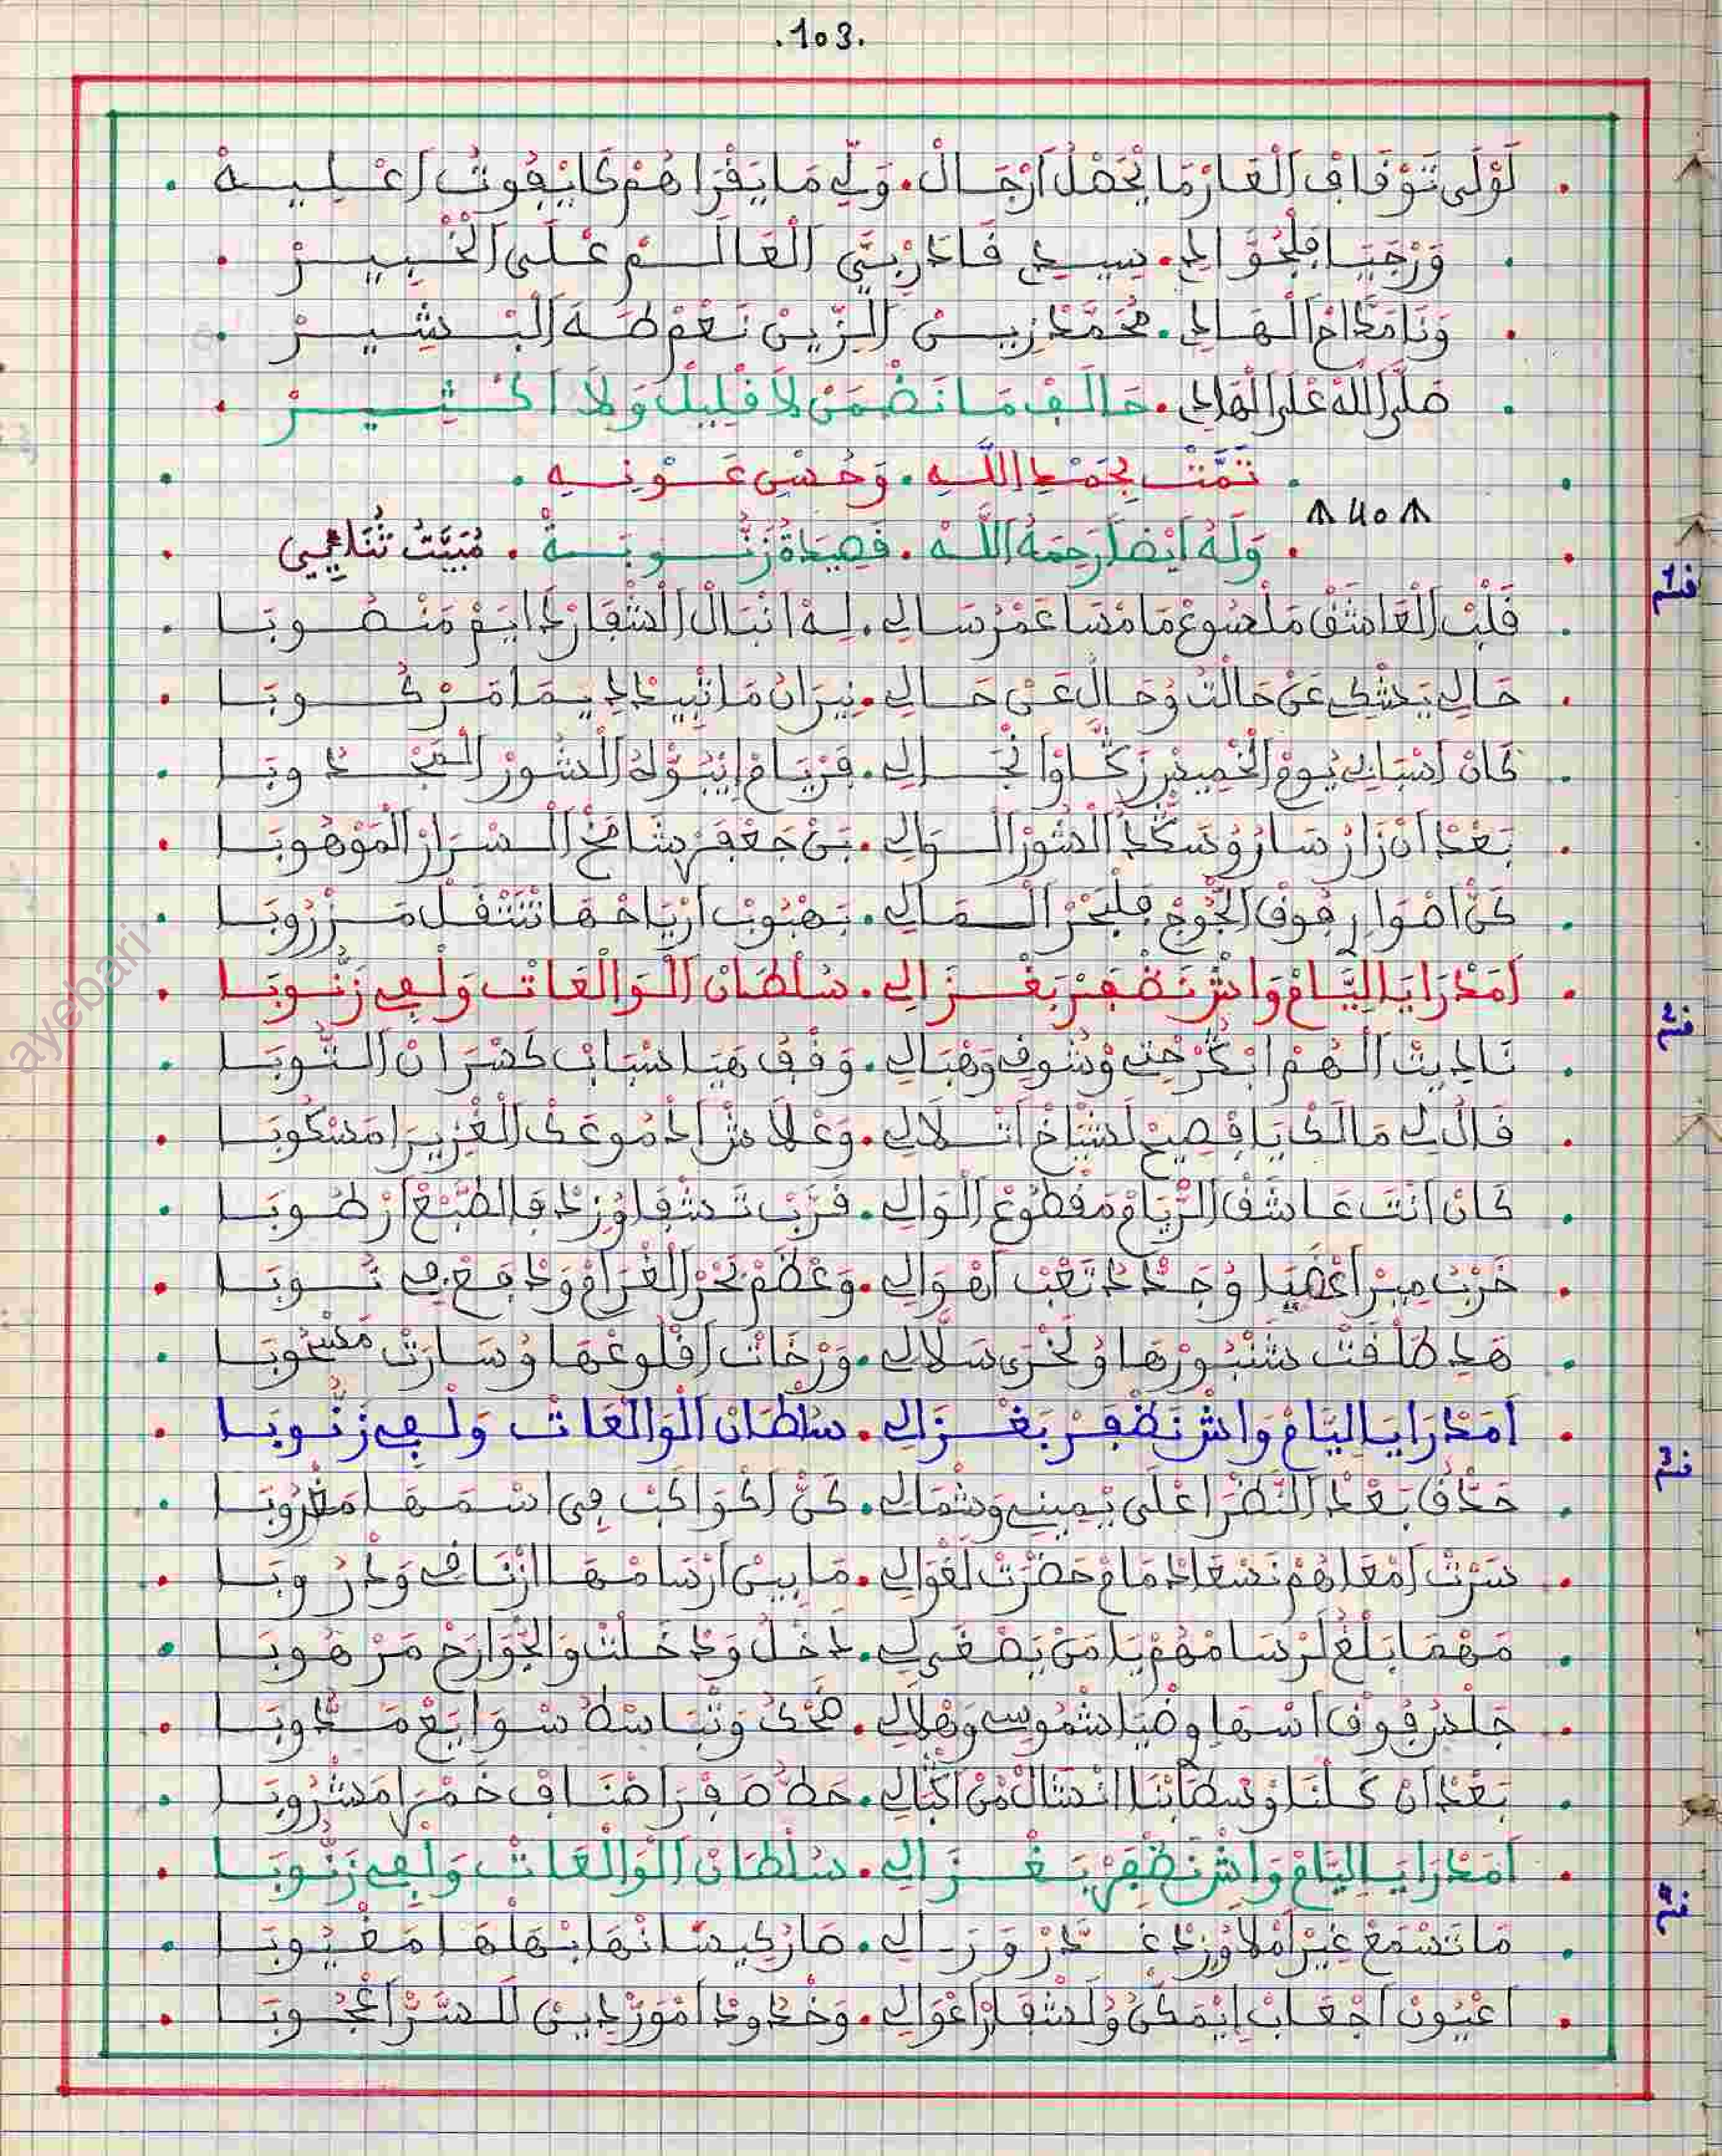 .103.
لَوْلَى تَوْقَافْ اَلْعَارْ مَا يَحْصَلْ اَرْجَالْ . وَلِّي مَا يَقْرَاهُمْ كَا يْفُوتْ اَعْلِيهْ
وَرْجَيَا فَلْجُوَّادِ . سِيدِي قَادَرْ رَبِّي اَلْعَالَمْ عْلَى اَلْخْبِيرْ
وَنَا مَدَّاحْ اَلْهَادِي . مُحَمَّدْ زِينْ اَلزِّينْ نَعْمْ طَهَ اَلْبْشِيرْ
صَلَّى اَللهْ عْلَى اَلْهَادِي . حَالَفْ مَا نَضْمَنْ لاَ قْلِيلْ وَلاَ اَكْثِيرْ
تَمَّتْ بِحَمْدِ اللَّهِ . وَحُسْنِ عَوْنِهِ
40
وَلَهُ اَيْضاً رَحِمَهُ اَللَّهْ . قَصِيدَةْ زَنُّوبَةْ . مُبَيَّتْ ثُنَاءِي
قسم 1
قَلْبْ اَلْعَاشَقْ مَلْسُوعْ مَا مْسَا عَمْرُ سَالِي . لِهْ اَنْبَالْ اَلشْفَارْ دَايَمْ مَنْصُوبَا
حَالِي يَشْكِي عَنْ حَالْتُ وُحَالْ عَنْ حَالِي . نِيرَانُ مَا اتْبِيدْ دِيمَا مَرْكُوبَا
كَانْ اَسْبَابِي يُومْ اَلْخْمِيسْ رَكَّاوْ انْجَالِي . فَرْيَامْ اِيْبُوّْلُهْ اَلسُّورْ اَلْمَجْدُوبَا
بَعْدْ اَنْ زَارْ سَارُ وُسَكَّدْ اَلسُّورْ اَلْوَالِي . بَنْ جَعْفَرْ شَامَخْ اَلسْرَارْ اَلْمَوْهُوبَا
كَنّْ اَصْوَارِ فُوقْ اَلْجُّوجْ فَلْبَحْرْ اَلْمَالِي . بَهْبُوبْ اَرْيَاحْهَا تَتْنْقَلْ مَزْرُوبَا
اَمَدْرَا يَا لِيَّامْ وَاشْ نَضْفَرْ بَغْزَالِي . سُلْطَانْ اَلْوَالْعَاتْ وَلْفِي زَنُّوبَا
قسم 2
نَادِيتْ اَلْهُمْ اَبْكَرْحْتِي وْشُوفِ وَهْبَالِي . وَقْفْ هَيَا سْبَابْ كَسْرَانْ اَلنُّوبَا
قَالْ لِي مَالَكْ يَا فْصِيحْ لَشْيَاخْ اَتْلاَلِي . وَعْلاَشْ اَدْمُوعَكْ اَلْغْزِيرَا مَسْكُوبَا
كَانْ اَنْتَ عَاشَقْ اَلرْيَامْ مَقْطُوعْ اَلْوَالِي . قَرَّبْ تَشْفَا وُزِيدْ فَالطَّبْعْ اَرْطُوبَا
خَرْبْ مِيرْ اَعْضَيَا وُجَدَّدْ تَعْبْ اَهْوَالِي . وَعْظَمْ بَحْرْ اَلْغْرَامْ وَدْفَعْ فِي نُوبَا
هَدِ طَلْقَتْ شَنْبُورْهَا وُلَخْرَى سَلاَّلِي . وَرْخَاتْ اَقْلُوعْهَا وُسَارَتْ مَسْحُوبَا
اَمَدْرَا يَا لِيَّامْ وَاشْ نَضْفَرْ بَغْزَالِي . سُلْطَانْ اَلْوَالْعَاتْ وَلْفِي زَنُّوبَا
قسم 3
حَدَّقْ بَعْدْ اَلنَّظْرَا عْلَى يْمِينِي وَشْمَالِي . كَنّْ اَكْوَاكَبْ فِي اسْمَهَا مَغْرُوبَا
سَرْتْ اَمْعَاهُمْ نَسْعَا دْمَامْ حَضْرَتْ لَغْوَالِي . مَا بِينْ اَرْسَامْهَا ازْنَاقِي وَدْرُوبَا
مَهْمَا بَلْغْ لَرْسَامْهُمْ يَا مَنْ يَصْغَى لِي . دَخْلْ وَدْخَلْتْ وَالْجْوَارَحْ مَرْهُوبَا
جَلْسُ فُوقْ اَسْهَا وِضْيَا شْمُوسِي وَهْلاَلِي . ضَحْكُ وَتْبَاسْطُ سْوَايَعْ مَدُّوبَا
بَعْدْ اَنْ كَلْنَا وُبْسْطَابْنَا انْسَالْ مْنْ اَكْبَالِي . حَطُّ صَفْرَ اَصْنَافْ خَمْرَا مَشْرُوبَا
اَمَدْرَا يَا لِيَّامْ وَاشْ نَضْفَرْ بَغْزَالِي . سُلْطَانْ اَلْوَالْعَاتْ وَلْفِي زَنُّوبَا
قسم 4
مَا تَسْمَعْ غِيرْ اَمْلاَ وُزِيدْ غَدَّرْ وَرَالِي . صَارْ كِيسَانْهَا بْهَلْهَا مَغْيُوبَا
اَعْيُونْ اَجْعَابْ اِيْمَكْنُ وُلَشْفَارْ اَعْوَالِي . وَخْدُودْ اَمْوَرّْدِينْ لَلسَّرّْ اَعْجُوبَا
ayebari